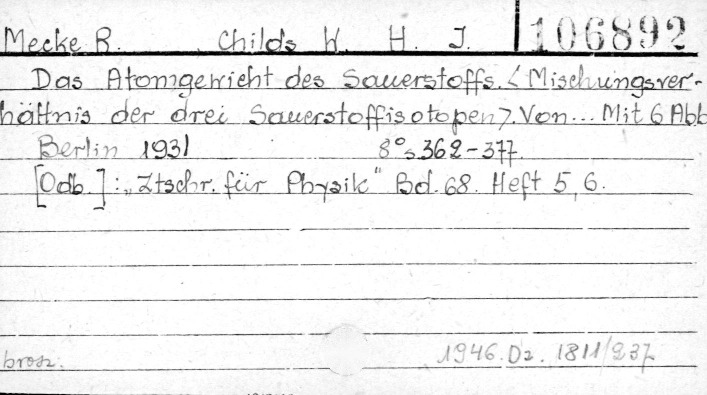 Mecke R. Childs W. H. J. 106892
Das Atomgewicht des Sauerstoffs. <Mischungsver-
hältnis der drei Sauerstoffisotopen>. Von... Mit 6 Abb
Berlin 1931 8° s 362-377.
[Odb.]: „Ztschr. für Physik" Bd. 68. Heft 5, 6.
brosz. 1946. Dz. 1811/237